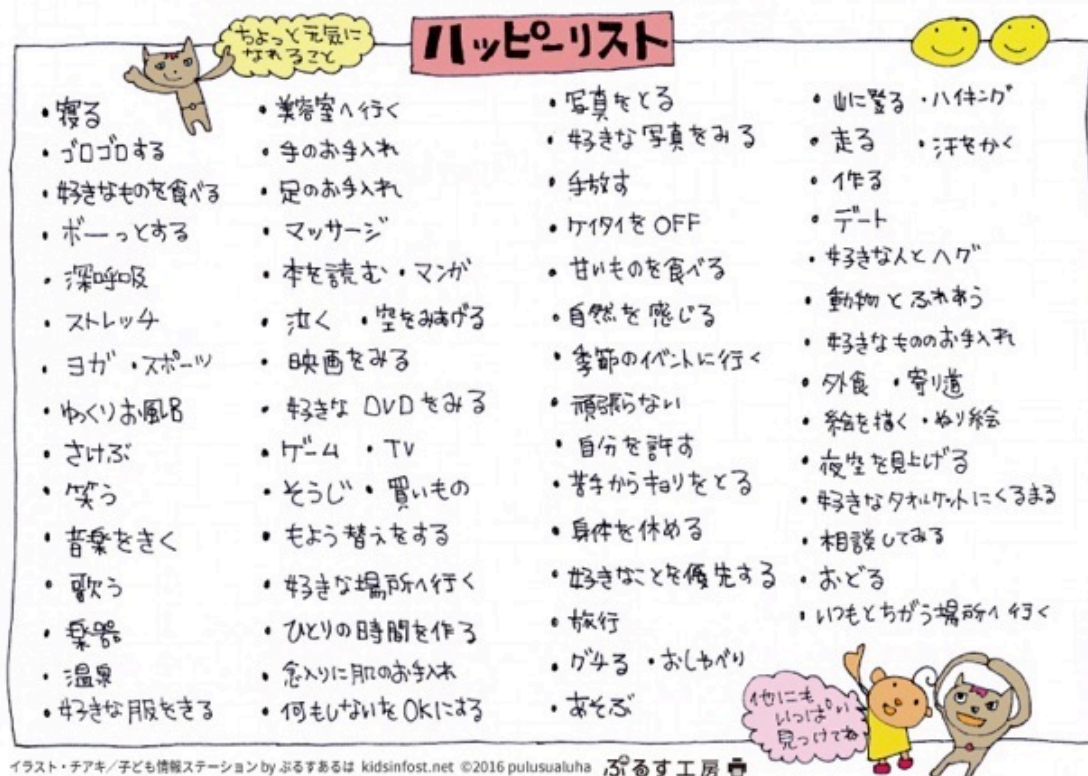 ちょっと元気に
なれること
ハッピーリスト
・寝る
・ゴロゴロする
・好きなものを食べる
・ボーっとする
・深呼吸
・ストレッチ
・ヨガ ・スポーツ
・ゆっくりお風呂
・さけぶ
・笑う
・音楽をきく
・歌う
・楽器
・温泉
・好きな服をきる
・美容室へ行く
・手のお手入れ
・足のお手入れ
・マッサージ
・本を読む ・マンガ
・泣く ・空をみあげる
・映画をみる
・好きな DVDをみる
・ゲーム ・TV
・そうじ ・買いもの
・もよう替えをする
・好きな場所へ行く
・ひとりの時間を作る
・念入りに肌のお手入れ
・何もしないをOKにする
・写真をとる
・好きな写真をみる
・手放す
・ケイタイをOFF
・甘いものを食べる
・自然を感じる
・季節のイベントに行く
・頑張らない
・自分を許す
・苦手からキョリをとる
・身体を休める
・好きなことを優先する
・旅行
・グチる ・おしゃべり
・あそぶ
・山に登る ・ハイキング
・走る ・汗をかく
・作る
・デート
・好きな人とハグ
・動物とふれあう
・好きなもののお手入れ
・外食 ・寄り道
・絵を描く ・ぬり絵
・夜空を見上げる
・好きなタオルケットにくるまる
・相談してみる
・おどる
・いつもとちがう場所へ行く
他にも
いっぱい
見つけてね
イラスト・チアキ／子ども情報ステーション by ぷるすあるは kidsinfost.net ©2016 pulusualuha ぷるす工房